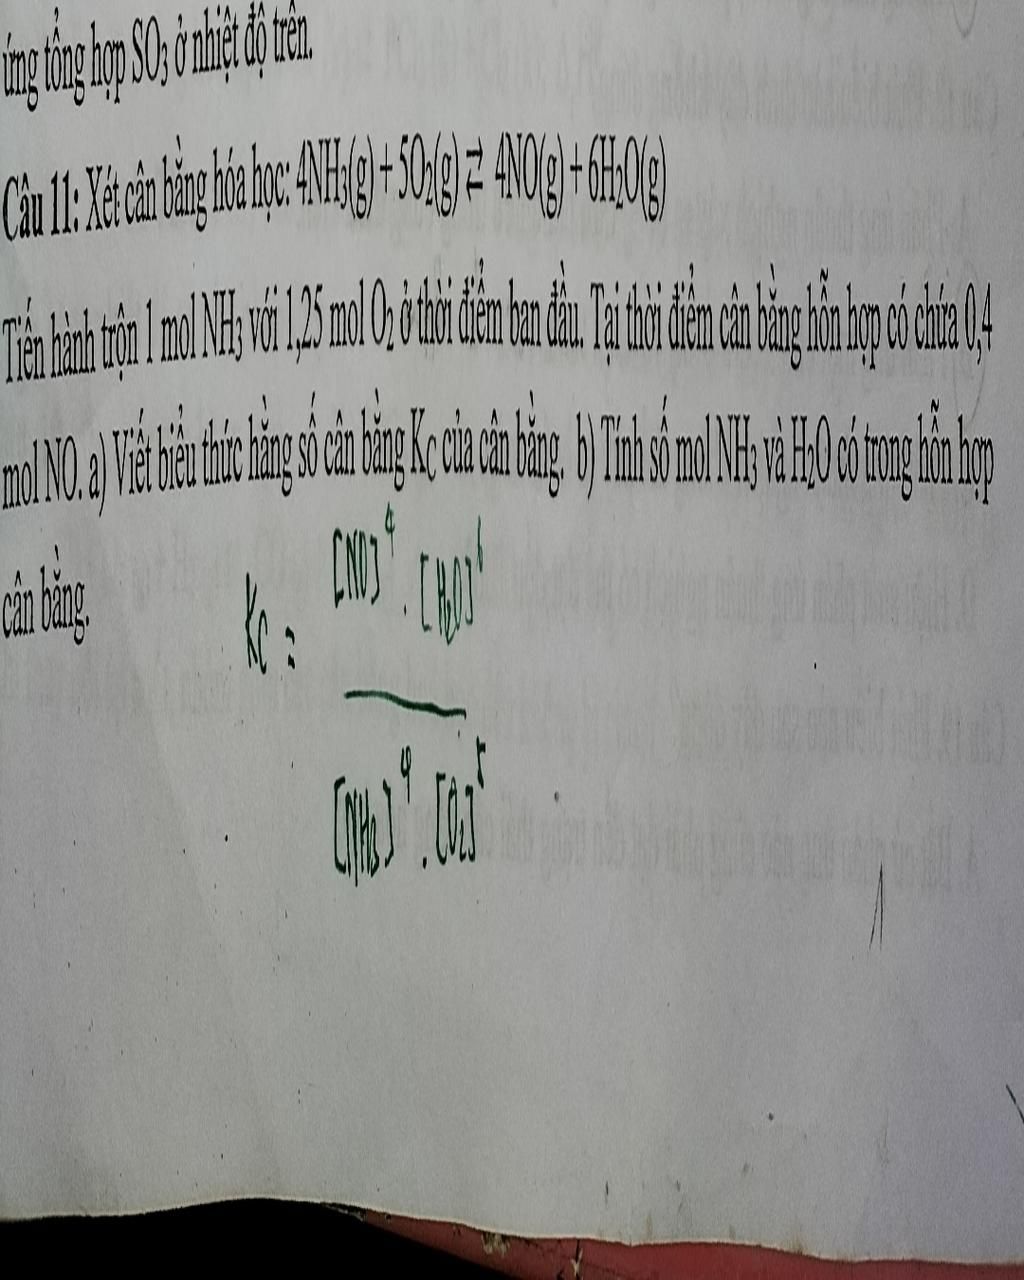 ứng tổng hợp SO₃ ở nhiệt độ trên.
Câu 11: Xét cân bằng hóa học: 4NH₃(g) + 5O₂(g) ⇄ 4NO(g) + 6H₂O(g)
Tiến hành trộn 1 mol NH₃ với 1,25 mol O₂ ở thời điểm ban đầu. Tại thời điểm cân bằng hỗn hợp có chứa 0,4
mol NO. a) Viết biểu thức hằng số cân bằng K_C của cân bằng. b) Tính số mol NH₃ và H₂O có trong hỗn hợp
cân bằng.
[NO]⁴ . [H₂O]⁶
K_C =
[NH₃]⁴ . [O₂]⁵